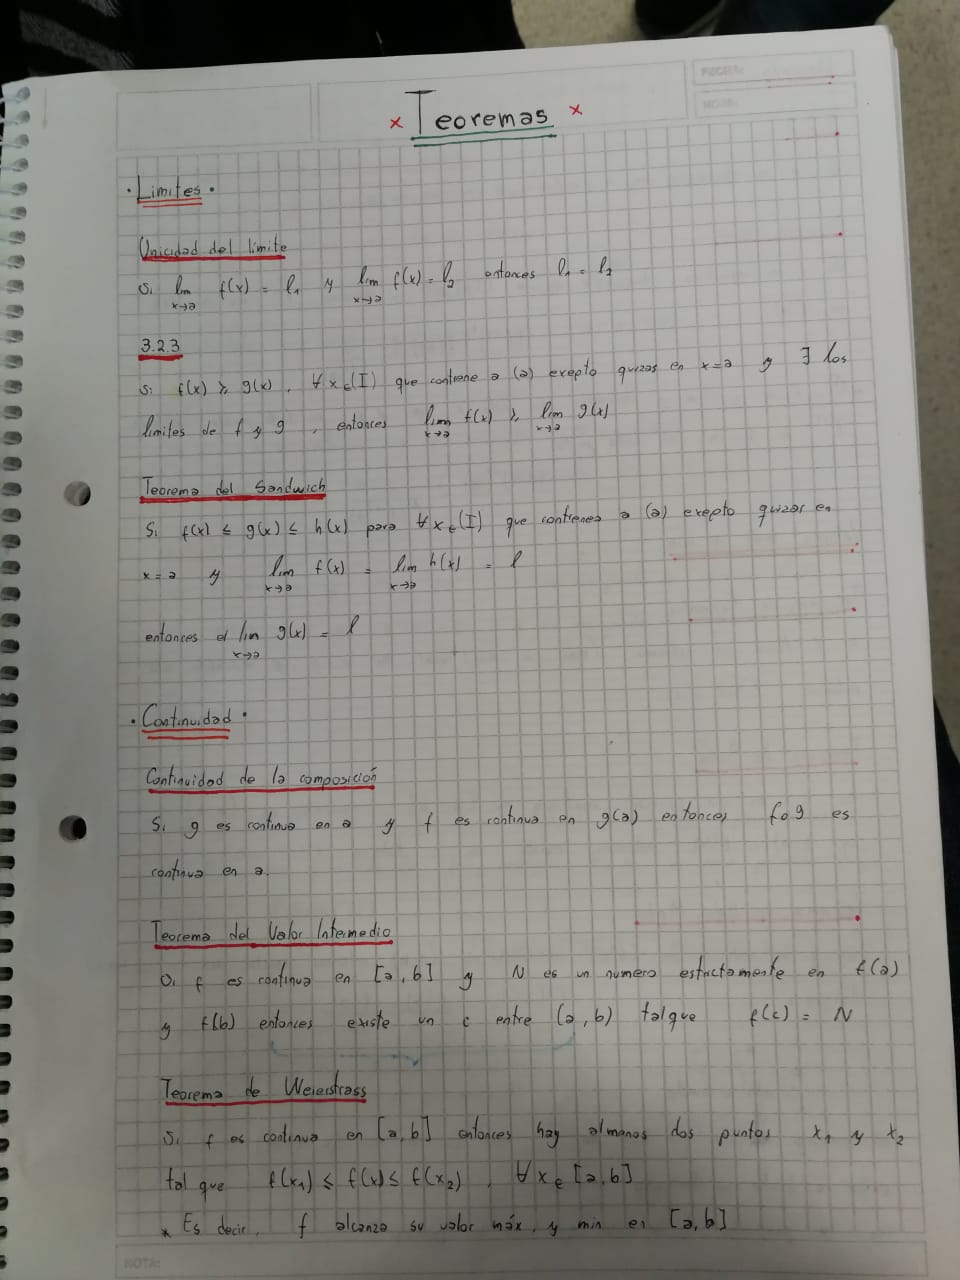 × Teoremas ×
· Limites ·
Unicidad del limite
Si lim x→a f(x) = l₁ y lim x→a f(x) = l₂ entonces l₁ = l₂
3.2.3
Si f(x) ≥ g(x), ∀ x ∈ (I) que contiene a (a) exepto quizas en x = a y ∃ los
limites de f y g, entonces lim x→a f(x) ≥ lim x→a g(x)
Teorema del Sandwich
Si f(x) ≤ g(x) ≤ h(x) para ∀ x ∈ (I) que contienea a (a) exepto quizas en
x = a y lim x→a f(x) = lim x→a h(x) = l
entonces el lim x→a g(x) = l
· Continuidad ·
Continuidad de la composición
Si g es continua en a y f es continua en g(a) entonces f∘g es
continua en a.
Teorema del Valor Intermedio
Si f es continua en [a,b] y N es un numero estrictamente en f(a)
y f(b) entonces existe un c entre (a,b) talque f(c) = N
Teorema de Weierstrass
Si f es continua en [a,b] entonces hay almenos dos puntos x₁ y x₂
tal que f(x₁) ≤ f(x) ≤ f(x₂), ∀ x ∈ [a,b]
* Es decir, f alcanza su valor máx, y min en [a,b]
NOTA: